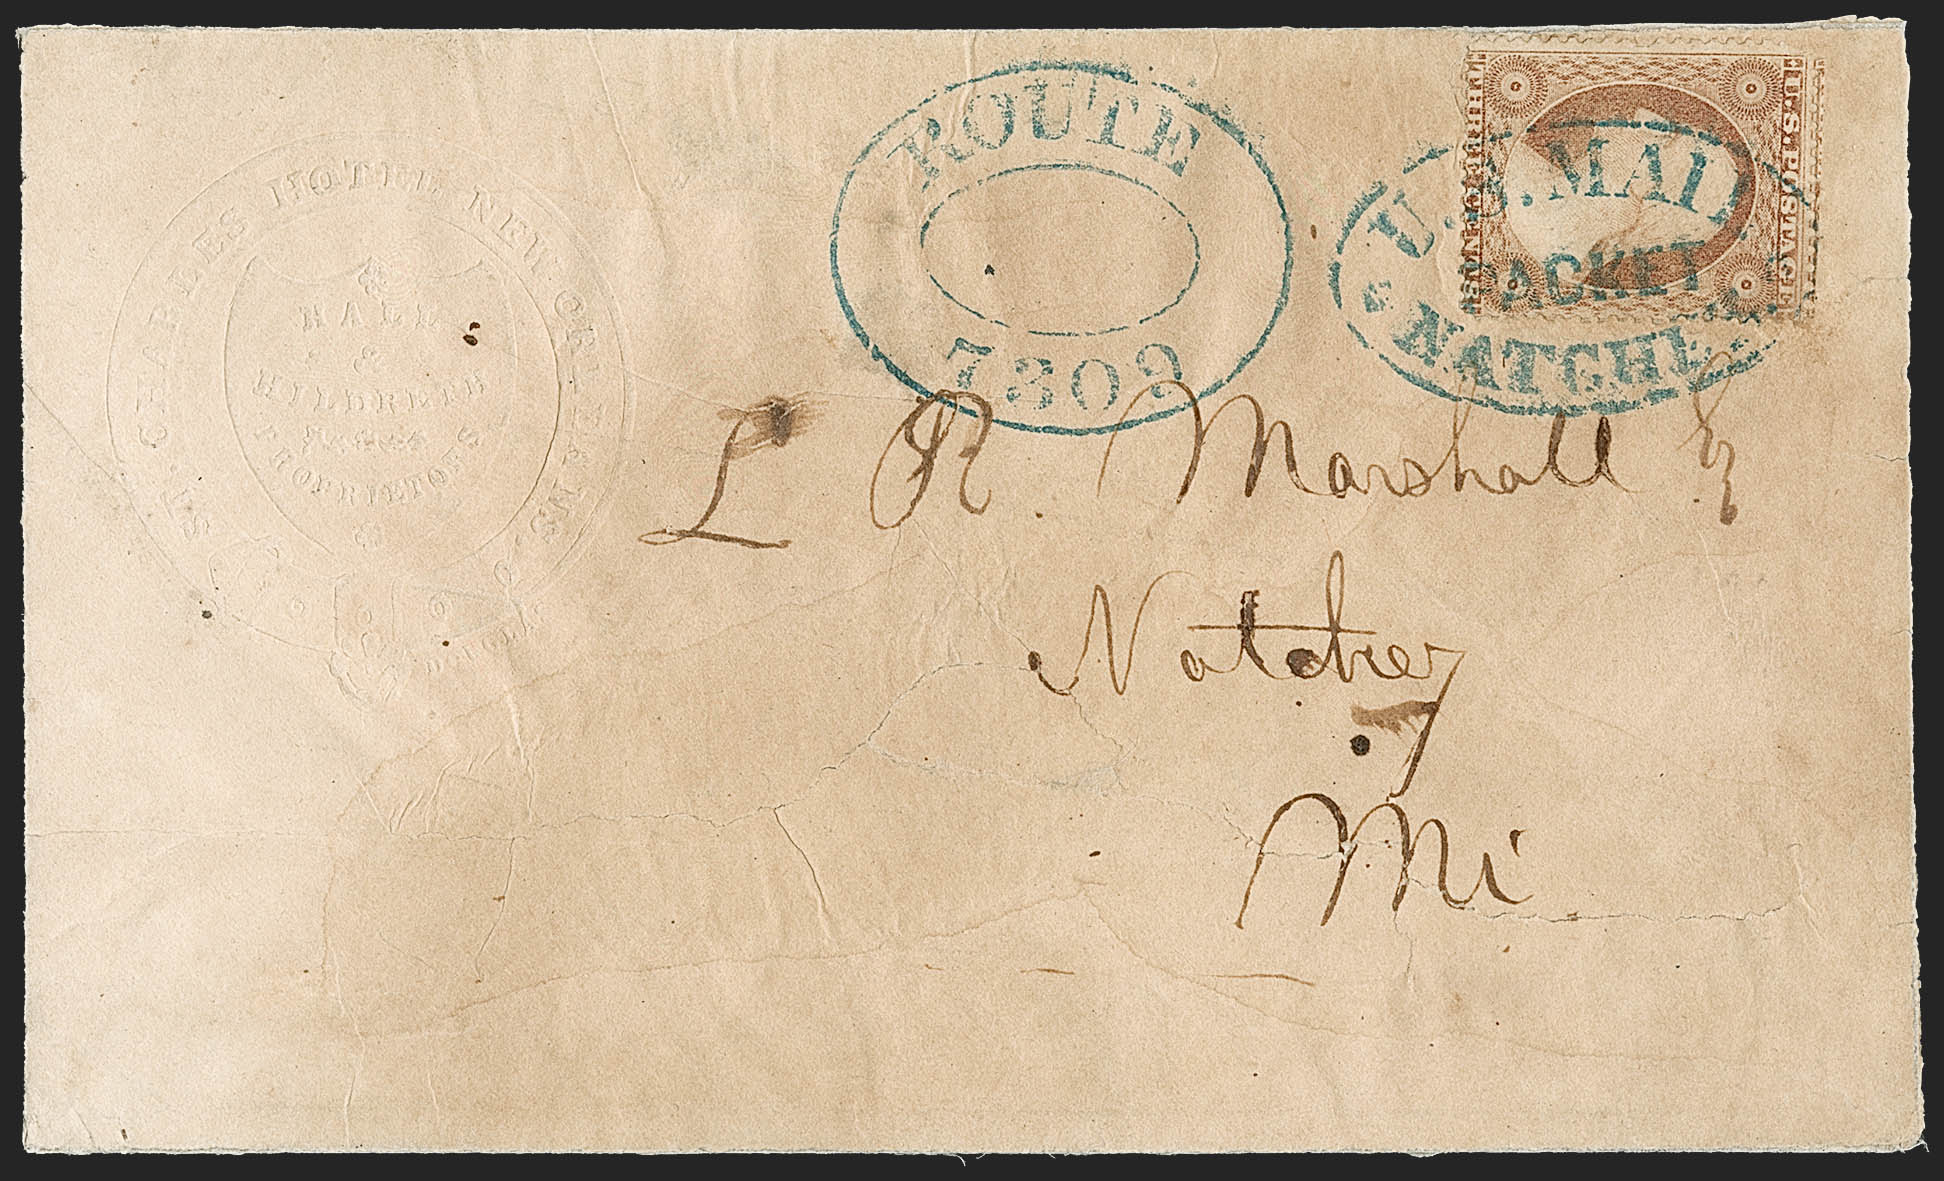 ST. CHARLES HOTEL NEW ORLEANS
HALL
&
HILDRETH
PROPRIETORS
ROUTE
7309
THREE CENTS
U.S. POSTAGE
U.S. MAIL
PACKET
NATCHE
L R. Marshall
Natchez
Mi